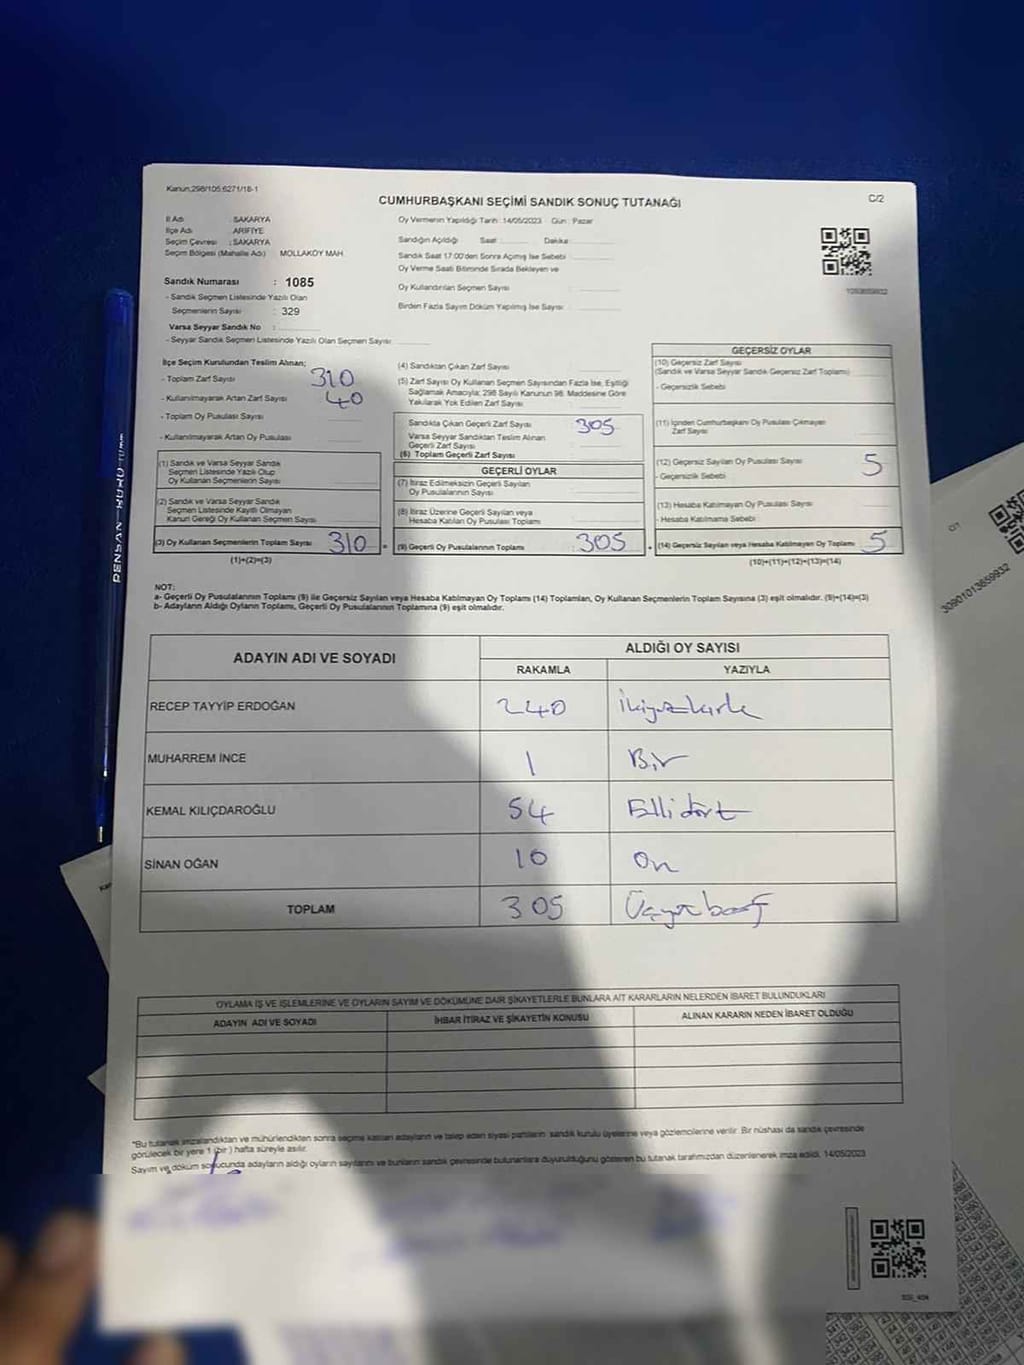 Kanun:298/105;6271/18-1
CUMHURBAŞKANI SEÇİMİ SANDIK SONUÇ TUTANAĞI
C/2
İl Adı : SAKARYA
İlçe Adı : ARİFİYE
Seçim Çevresi : SAKARYA
Seçim Bölgesi (Mahalle Adı) MOLLAKÖY MAH.
Oy Vermenin Yapıldığı Tarih :14/05/2023 Gün : Pazar
Sandığın Açıldığı Saat : Dakika:
Sandık Saat 17:00'den Sonra Açılmış İse Sebebi :
Oy Verme Saati Bitiminde Sırada Bekleyen ve
Oy Kullandırılan Seçmen Sayısı :
Birden Fazla Sayım Döküm Yapılmış İse Sayısı :
Sandık Numarası : 1085
- Sandık Seçmen Listesinde Yazılı Olan
Seçmenlerin Sayısı : 329
Varsa Seyyar Sandık No :
- Seyyar Sandık Seçmen Listesinde Yazılı Olan Seçmen Sayısı
İlçe Seçim Kurulundan Teslim Alınan;
- Toplam Zarf Sayısı 310
- Kullanılmayarak Artan Zarf Sayısı 40
- Toplam Oy Pusulası Sayısı
- Kullanılmayarak Artan Oy Pusulası
(1) Sandık ve Varsa Seyyar Sandık
Seçmen Listesinde Yazılı Olup
Oy Kullanan Seçmenlerin Sayısı
(2) Sandık ve Varsa Seyyar Sandık
Seçmen Listesinde Kayıtlı Olmayan
Kanun Gereği Oy Kullanan Seçmen Sayısı
(3) Oy Kullanan Seçmenlerin Toplam Sayısı 310 =
(1)+(2)=(3)
(4) Sandıktan Çıkan Zarf Sayısı :
(5) Zarf Sayısı Oy Kullanan Seçmen Sayısından Fazla İse, Eşitliği
Sağlamak Amacıyla; 298 Sayılı Kanunun 98. Maddesine Göre
Yakılarak Yok Edilen Zarf Sayısı :
Sandıkta Çıkan Geçerli Zarf Sayısı : 305
Varsa Seyyar Sandıktan Teslim Alınan
Geçerli Zarf Sayısı :
(6) Toplam Geçerli Zarf Sayısı :
GEÇERLİ OYLAR
(7) İtiraz Edilmeksizin Geçerli Sayılan
Oy Pusulalarının Sayısı :
(8) İtiraz Üzerine Geçerli Sayılan veya
Hesaba Katılan Oy Pusulası Toplamı :
(9) Geçerli Oy Pusulalarının Toplamı : 305 +
GEÇERSİZ OYLAR
(10) Geçersiz Zarf Sayısı
(Sandık ve Varsa Seyyar Sandık Geçersiz Zarf Toplamı)
- Geçersizlik Sebebi :
(11) İçinden Cumhurbaşkanı Oy Pusulası Çıkmayan
Zarf Sayısı :
(12) Geçersiz Sayılan Oy Pusulası Sayısı : 5
- Geçersizlik Sebebi :
(13) Hesaba Katılmayan Oy Pusulası Sayısı
- Hesaba Katılmama Sebebi :
(14) Geçersiz Sayılan veya Hesaba Katılmayan Oy Toplamı : 5
(10)+(11)+(12)+(13)=(14)
NOT:
a- Geçerli Oy Pusulalarının Toplamı (9) ile Geçersiz Sayılan veya Hesaba Katılmayan Oy Toplamı (14) Toplamları, Oy Kullanan Seçmenlerin Toplam Sayısına (3) eşit olmalıdır. (9)+(14)=(3)
b- Adayların Aldığı Oyların Toplamı, Geçerli Oy Pusulalarının Toplamına (9) eşit olmalıdır.
ADAYIN ADI VE SOYADI
ALDIĞI OY SAYISI
RAKAMLA YAZIYLA
RECEP TAYYİP ERDOĞAN 240 İkiyüzkırk
MUHARREM İNCE 1 Bir
KEMAL KILIÇDAROĞLU 54 Ellidört
SİNAN OĞAN 10 On
TOPLAM 305 Üçyüzbeş
OYLAMA İŞ VE İŞLEMLERİNE VE OYLARIN SAYIM VE DÖKÜMÜNE DAİR ŞİKAYETLERLE BUNLARA AİT KARARLARIN NELERDEN İBARET BULUNDUKLARI
ADAYIN ADI VE SOYADI İHBAR İTİRAZ VE ŞİKAYETİN KONUSU ALINAN KARARIN NEDEN İBARET OLDUĞU
*Bu tutanak imzalandıktan ve mühürlendikten sonra seçime katılan adayların ve talep eden siyasi partilerin sandık kurulu üyelerine veya gözlemcilerine verilir. Bir nüshası da sandık çevresinde
görülecek bir yere 1 (bir) hafta süreyle asılır.
Sayım ve döküm sonucunda adayların aldığı oyların sayılarını ve bunların sandık çevresinde bulunanlara duyurulduğunu gösteren bu tutanak tarafımızdan düzenlenerek imza edildi. 14/05/2023
PENSAN
3090101365993​2